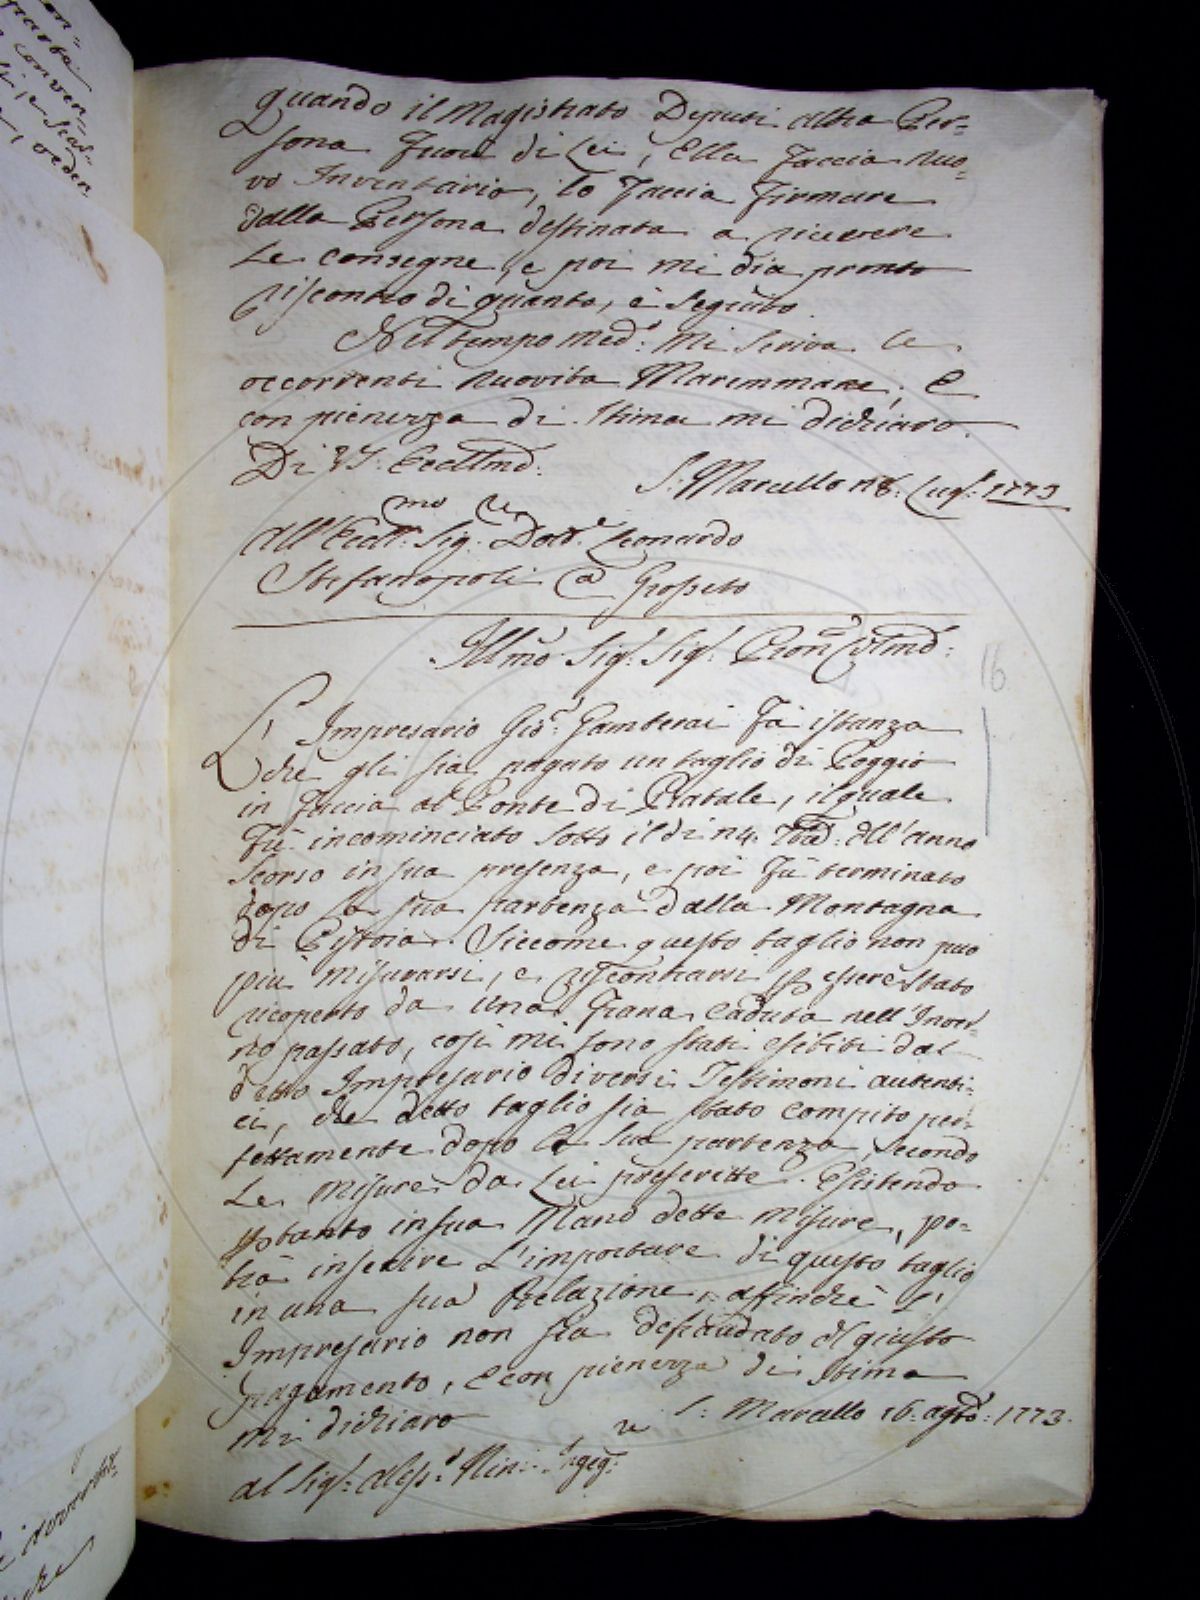 quando il Magistrato Deputi altra Per-
sona fuori di Lei, Ella faccia nuo-
vo Inventario, lo faccia firmare
dalla Persona destinata a ricevere
Le consegne, e poi mi dia pronto
riscontro di quanto, è seguito.
Nel tempo med.o mi scriva le
occorrenti nuovità Maremmane; E
con pienezza di stima mi dichiaro.
Di VS. Eccell.ma
S: Marcello 18: Lug.o 1773
All'Ecc.mo Sig.re Dott.e Leonardo
Stefanopoli @ Grosseto
Ill.mo Sig.r Sig.r Pron.e Col.mo
16
L'Impresario Gio: Gamberai fà istanza
che gli sia pagato un taglio di Poggio
in faccia al Ponte di Piatale, il quale
fù incominciato sotto il dì 14. 7bre dell'anno
scorso in sua presenza, e poi fù terminato
dopo la sua partenza dalla Montagna
di Pistoia. Siccome questo taglio non può
più misurarsi, e riscontrarsi p essere stato
ricoperto da una frana caduta nell'Inver-
no passato, così mi sono stati esibiti dal
detto Impresario diversi Testimoni autenti-
ci, che detto taglio sia stato compito per-
fettamente dopo la sua partenza, secondo
Le misure da Lei prescritte. Esistendo
ptanto in sua Mano dette misure, po-
trà inserire L'importare di questo taglio
in una sua Relazione, affinchè L'
Impresario non sia defraudato del giusto
pagamento, e con pienezza di stima
mi dichiaro
S: Marcello 16: agto: 1773.
al Sig.r Aless.o Nini Ingeg.re